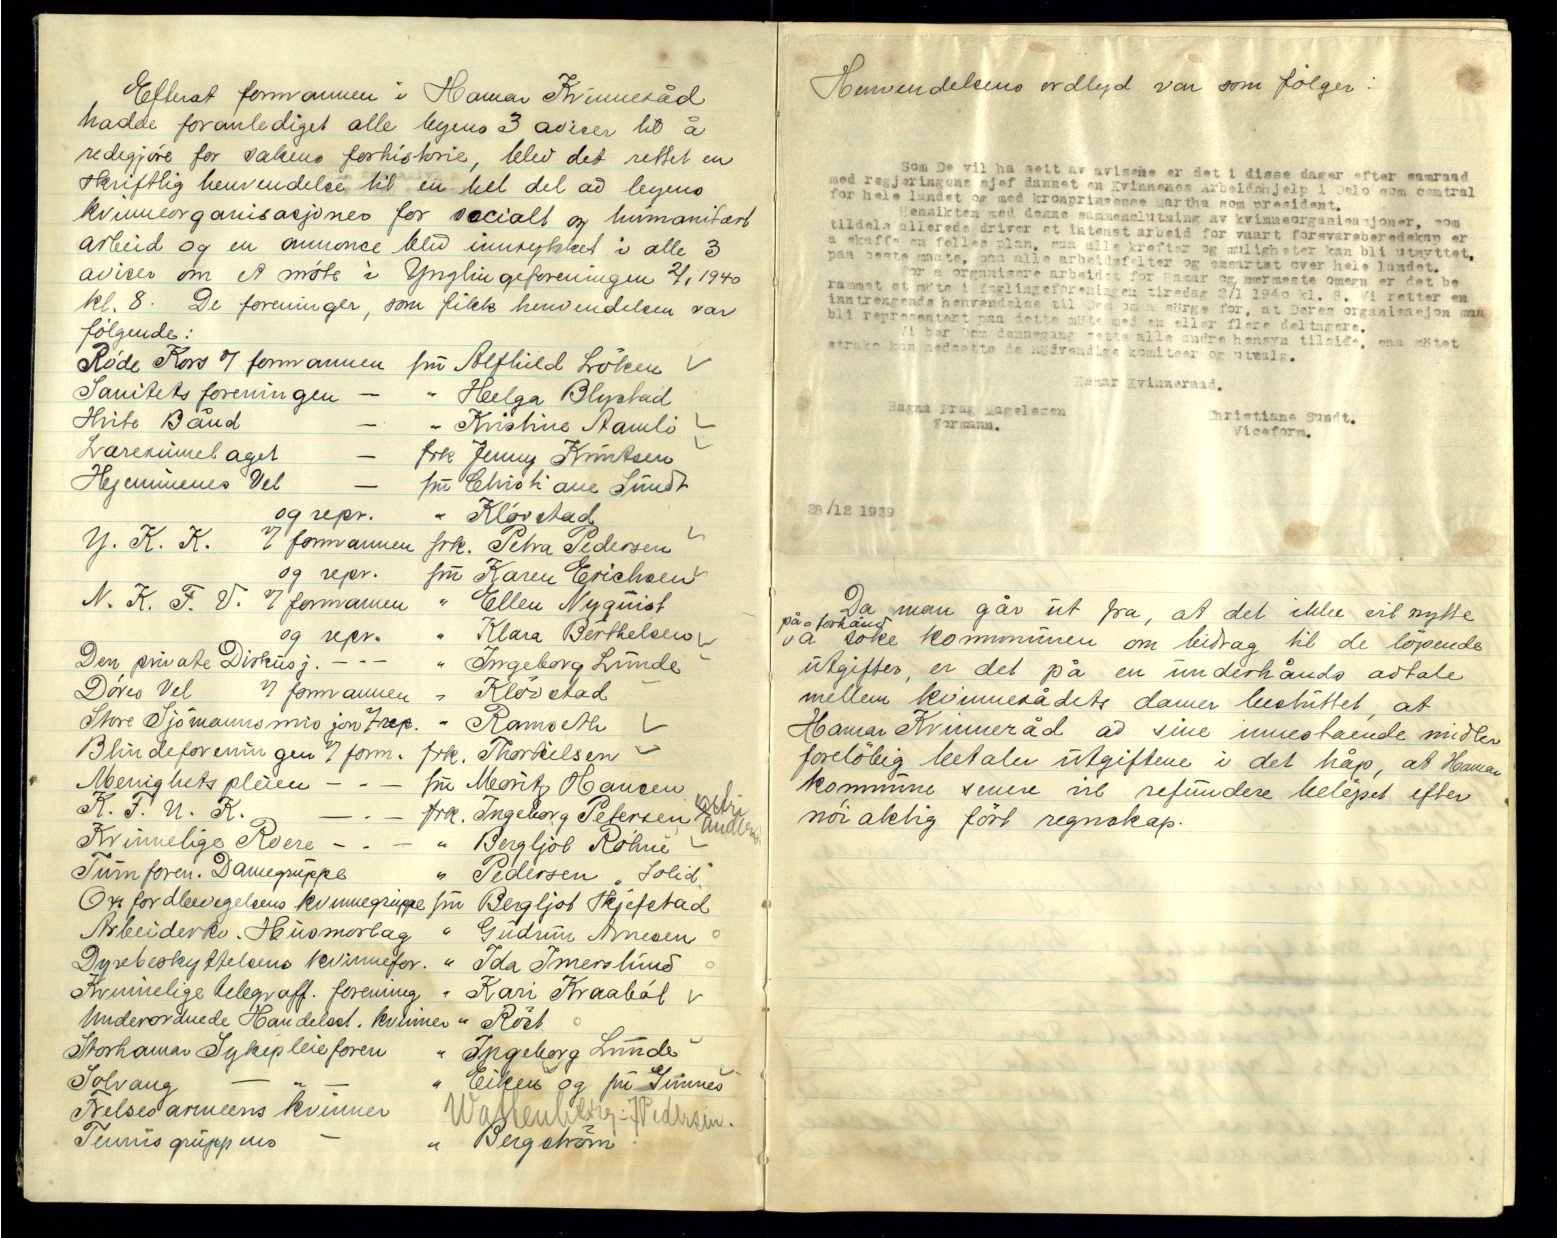 Efterat formannen i Hamar Kvinneråd
hadde foranlediget alle byens 3 aviser til å
redegjöre for sakens forhistorie, blev det rettet en
skriftlig henvendelse til en hel del av byens
kvinneorganisasjoner for socialt og humanitært
arbeid og en annonce blev innrykket i alle 3
aviser om et möte i Ynglingeforeningen 2/1 1940
kl. 8. De foreninger, som fikk henvendelsen var
fölgende:
Röde Kors v/ formannen fru Alfhild Löken ✓
Sanitetsforeningen — " Helga Blystad
Hvite Bånd — " Kristine Aamli ✓
Lærerinnelaget — frk Jenny Knutsen ✓
Hjemmenes Vel — fru Christiane Sundt
og repr. " Klövstad
Y. K. K. v/ formannen frk. Petra Pedersen ✓
og repr. fru Karen Erichsen ✓
N. K. F. V. v/ formannen " Ellen Nyquist
og repr. " Klara Berthelsen ✓
Den private Diskusj. - - - " Ingeborg Lunde
Döves Vel v/ formannen " Klövstad
Store Sjömannsmisjon v/ rep. " Ramseth ✓
Blindeforeningen v/ form. frk. Thorkilsen ✓
Menighetspleien - - - fru Moritz Hansen
K. F. U. K. — . — frk. Ingeborg Petersen
Kvinnelige Roere - . - " Bergljot Röhne ✓
Turnforen. Damegruppe " Pedersen „Solid"
Oxfordbevegelsens kvinnegruppe fru Bergljot Skjefstad
Arbeiderkv. Husmorlag " Gudrun Arnesen o
Dyrebeskyttelsens kvinnefor. " Ida Imerslund o
Kvinnelige telegraff. forening " Kari Kraaböl ✓
Underordnede Handelsst. kvinner " Röst o
Storhamar Sykepleieforen " Ingeborg Lunde
Solvang — " — " Eiken og fru Simnes
Frelsesarmeens kvinner
Tennisgruppens — " Bergström
Henvendelsens ordlyd var som fölger:
Som De vil ha sett av avisene er det i disse dager efter samraad
med regjeringens sjef dannet en Kvinnenes Arbeidshjelp i Oslo som central
for hele landet og med kronprinsesse Martha som president.
Hensikten med denne sammenslutning av kvinneorganisasjoner, som
tildels allerede driver et intenst arbeid for vaart forsvarsberedskap er
a skaffe en felles plan, saa alle krefter og muligheter kan bli utnyttet,
paa beste maate, paa alle arbeidsfelter og ensartet over hele landet.
For a organisere arbeidet for Hamar og nærmeste omegn er det be
rammet et möte i Ynglingeforeningen tirsdag 2/1 1940 kl. 8. Vi retter en
inntrengende henvendelse til Dem om a sörge for, at Deres organisasjon maa
bli representert paa dette möte med en eller flere deltagere.
Vi ber Dem dennegang sette alle andre hensyn tilside, saa mötet
straks kan nedsette de nödvendige komiteer og utvalg.
Hamar Kvinneraad.
Ragna Prag Magelssen
Formann.
Christiane Sundt.
Viceform.
28/12 1939
Da man går ut fra, at det ikke vil nytte
på forhånd
å söke kommunen om bidrag til de löpende
utgifter, er det på en underhånds avtale
mellem kvinnerådets damer besluttet, at
Hamar Kvinneråd av sine innestående midler
forelöbig betaler utgiftene i det håp, at Hamar
kommune senere vil refundere belöpet efter
nöiaktig fört regnskap.